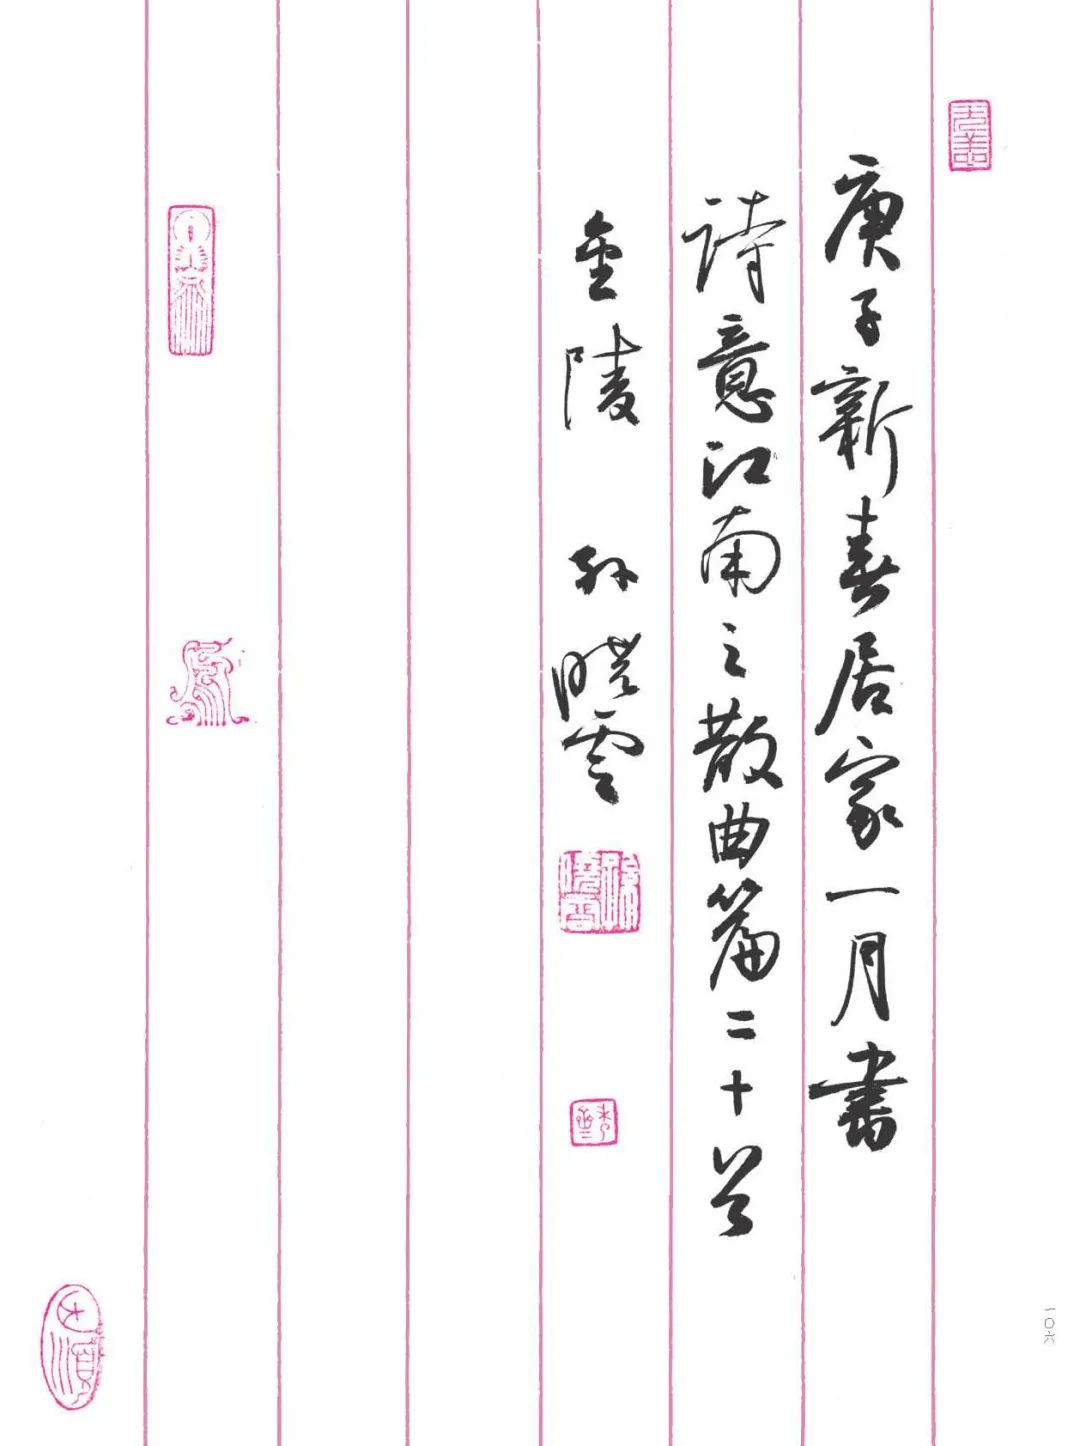 庚子新春居家一月書
詩意江南之散曲篇二十首
金陵 孙曉雲
孫曉雲
大順